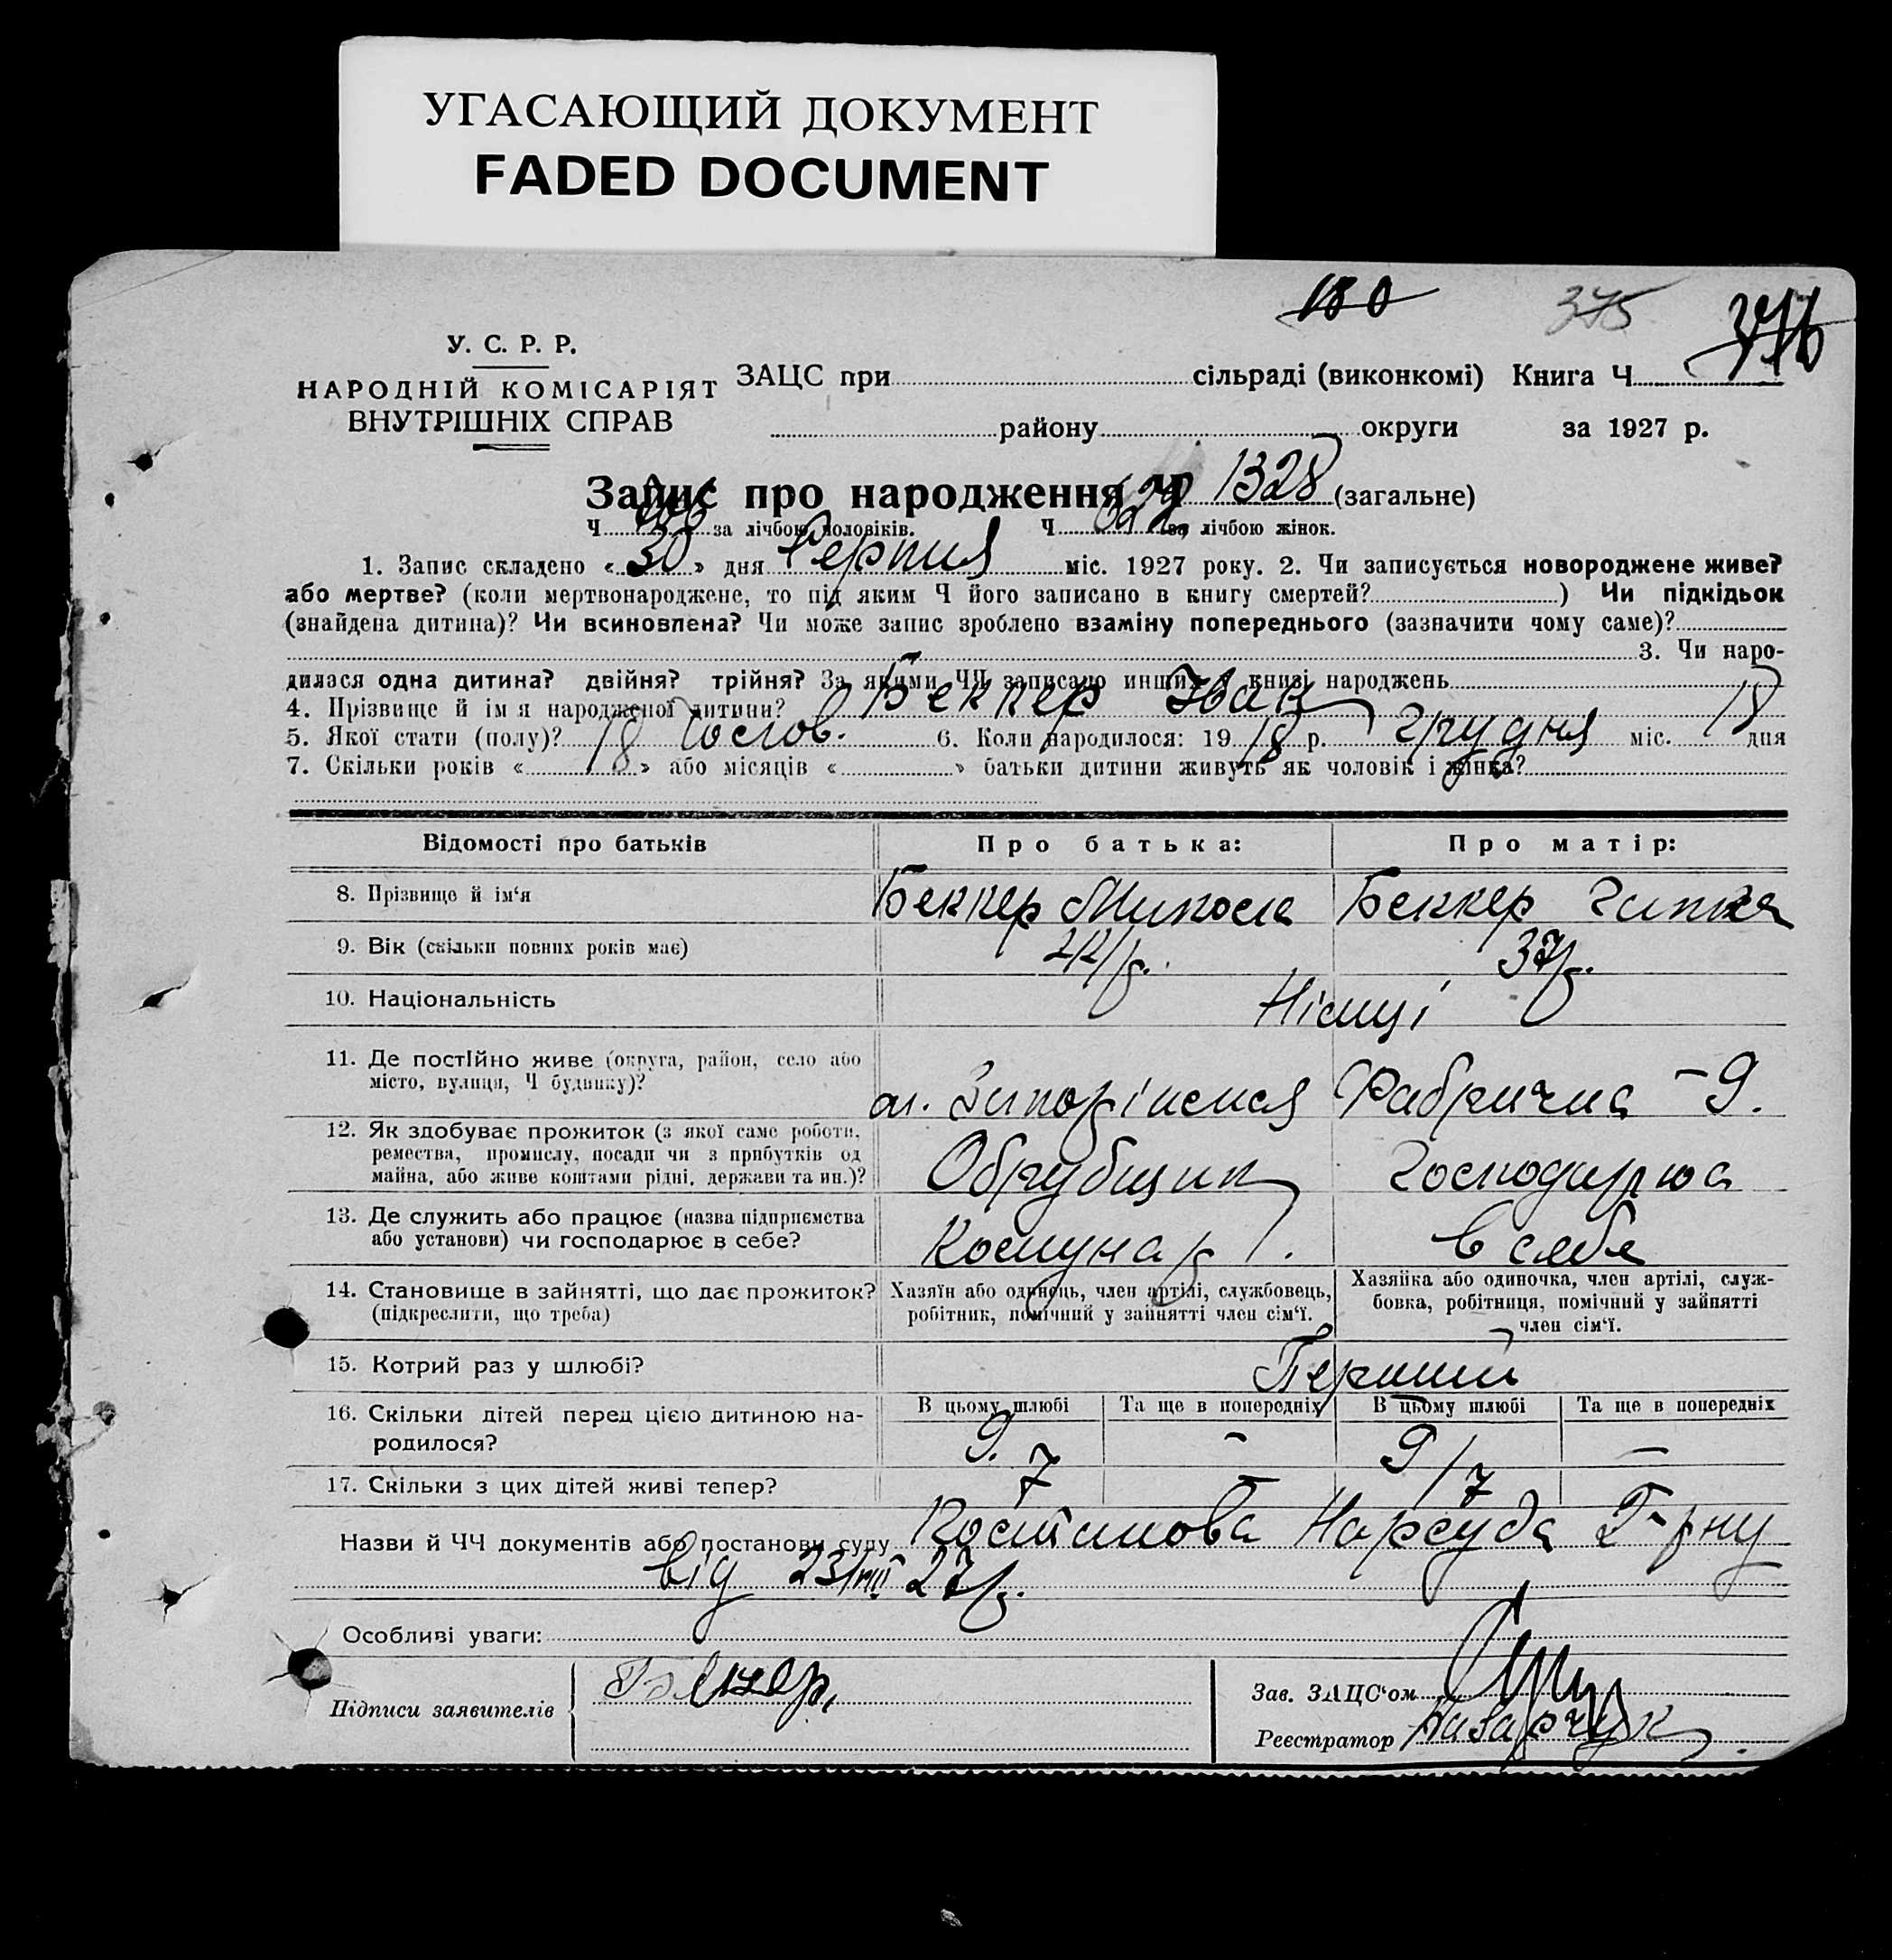 УГАСАЮЩИЙ ДОКУМЕНТ
FADED DOCUMENT
180 375 376
У. С. Р. Р.
НАРОДНІЙ КОМІСАРІЯТ
ВНУТРІШНІХ СПРАВ
ЗАЦС при сільраді (виконкомі) Книга Ч
району округи за 1927 р.
Запис про народження Ч 1328 (загальне)
Ч за лічбою чоловіків. Ч 622 за лічбою жінок.
1. Запис складено « 30 » дня Серпня міс. 1927 року. 2. Чи записується новороджене живе?
або мертве? (коли мертвонароджене, то під яким Ч його записано в книгу смертей? ) Чи підкідьок
(знайдена дитина)? Чи всиновлена? Чи може запис зроблено взаміну попереднього (зазначити чому саме)?
3. Чи наро-
дилася одна дитина? двійня? трійня? За якими ЧЧ записано инших в книзі народжень
4. Прізвище й ім я народженої дитини? Беккер Іван
5. Якої стати (полу)? чолов. 6. Коли народилося: 19 18 р. Грудня міс. 18 дня
7. Скільки років « 18 » або місяців « » батьки дитини живуть як чоловік і жінка?
Відомості про батьків Про батька: Про матір:
8. Прізвище й ім‘я Беккер Микола Беккер
9. Вік (скільки повних років має) 42 р. 37 р.
10. Національність Німці
11. Де постійно живе (округа, район, село або
місто, вулиця, Ч будинку)? м. Запоріжжя Фабрична – 9.
12. Як здобуває прожиток (з якої саме роботи,
ремества, промислу, посади чи з прибутків од
майна, або живе коштами рідні, держави та ин.)? Обрубщик Господарює
13. Де служить або працює (назва підприємства
або установи) чи господарює в себе? Комунар. в себе
14. Становище в зайнятті, що дає прожиток?
(підкреслити, що треба)
Хазяїн або одинець, член артілі, службовець,
робітник, помічний у зайнятті член сім‘ї.
Хазяйка або одиночка, член артілі, служ-
бовка, робітниця, помічний у зайнятті
член сім‘ї.
15. Котрий раз у шлюбі? Перший
16. Скільки дітей перед цією дитиною на-
родилося?
В цьому шлюбі Та ще в попередніх В цьому шлюбі Та ще в попередніх
9. – 9 –
17. Скільки з цих дітей живі тепер? 7 – 7
Назви й ЧЧ документів або постанови суду Постанова Нарсуда 2-рну
від 23/VIII 27 р.
Особливі уваги:
Підписи заявителів Беккер.
Зав. ЗАЦС‘ом
Реєстратор Назарчук